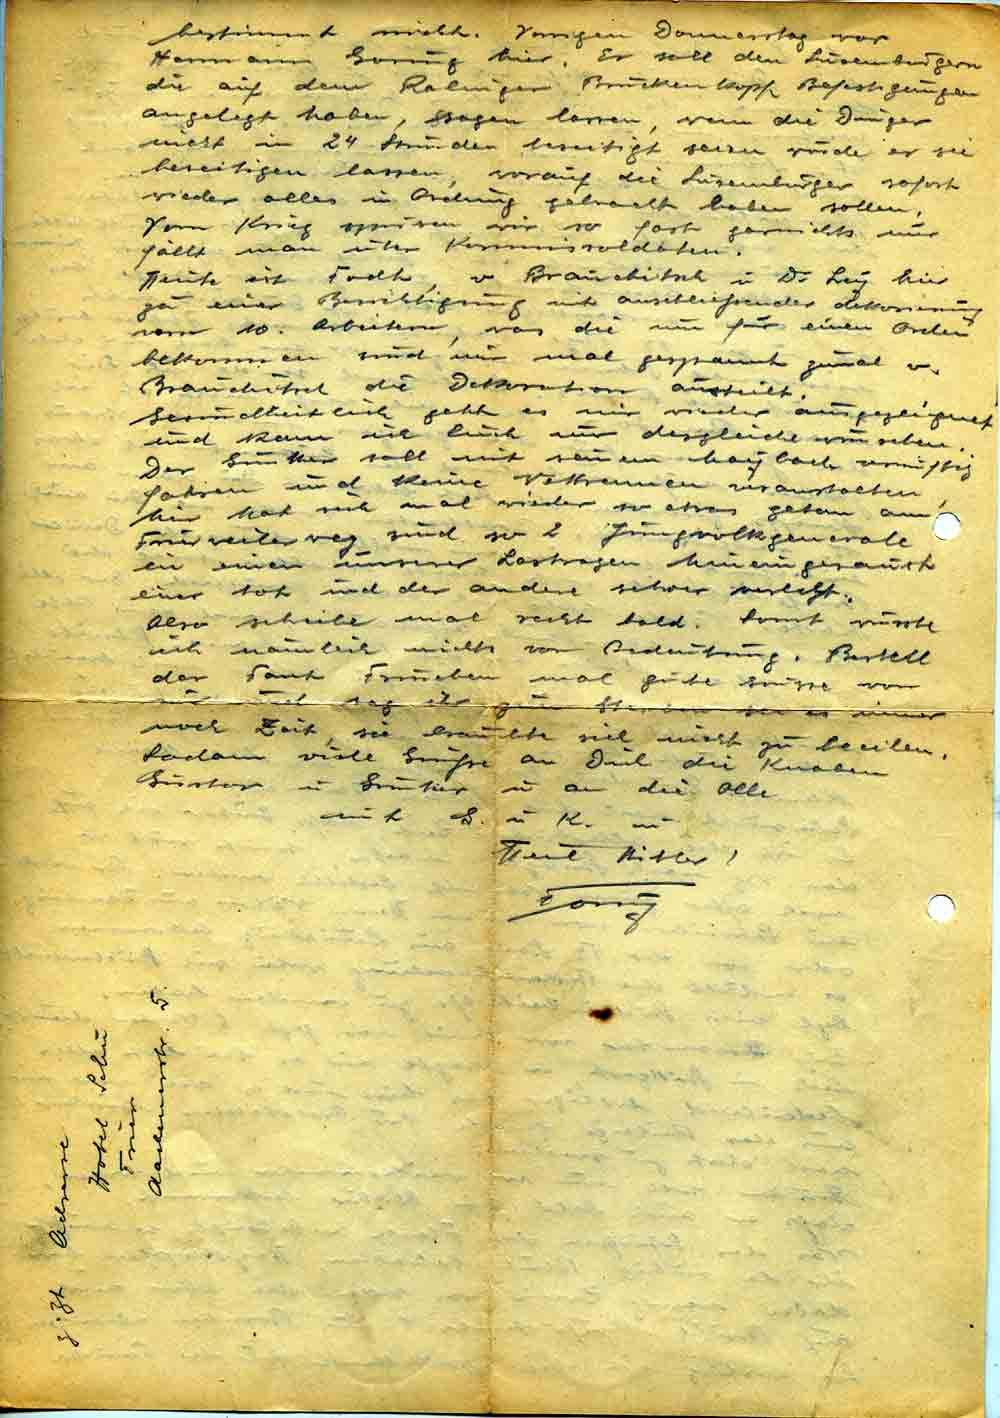 bestimmt nicht. Vorigen Donnerstag war
Hermann Göring hier. Er soll den Luxemburgern
die auf dem Ralinger Brückenkopf Befestigungen
angelegt haben, sagen lassen, wenn die Dinger
nicht in 24 Stunden beseitigt seien würde er sie
beseitigen lassen, worauf die Luxemburger sofort
wieder alles in Ordnung gebracht haben sollen.
Vom Krieg spüren wir so fast garnichts nur
fällt man über Kommissoldaten.
Heute ist Todt, v Brauchitsch u Dr Ley hier
zu einer Besichtigung mit anschliessender dekorierung
von 10. Arbeitern, was die nun für einen Orden
bekommen sind wir mal gespannt zumal v.
Brauchitsch die Dekoration austeilt.
Gesundheitlich geht es mir wieder ausgezeignet
und kann ich Euch nur desgleiche wünschen.
Der Günther soll mit seinem Maybach vernüftig
fahren und keine Vettrennen veranstalten,
hier hat sich mal wieder so etwas getan am
Trierweilerweg sind so 2 Jungvolkgenerale
in einen unserer Lastwagen hineingesaust
einer tot und der andere schwer verletzt.
Also schreibe mal recht bald. Sonst wüsste
ich nämlich nichts von Bedeutung. Bestell
der Tant Trinchen mal gute Grüsse von
mir und sag ihr zum Sterben sei es immer
noch Zeit, sie brauchte sich nicht zu beeilen.
Sodann viele Grüsse an Dich die Knaben
Gustav u Günther u an die Olle
mit G. u K. u
Heil Hitler!
Tony
z. Zt Adresse
Hotel Schu
Trier
Aachenerstr. 5.